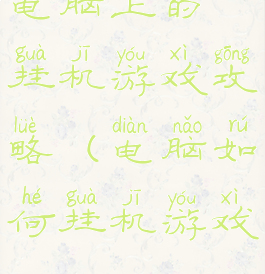 电脑上的
guà jī yóu xì gōng
挂机游戏攻
lüè diàn nǎo rú
略（电脑如
hé guà jī yóu xì
何挂机游戏